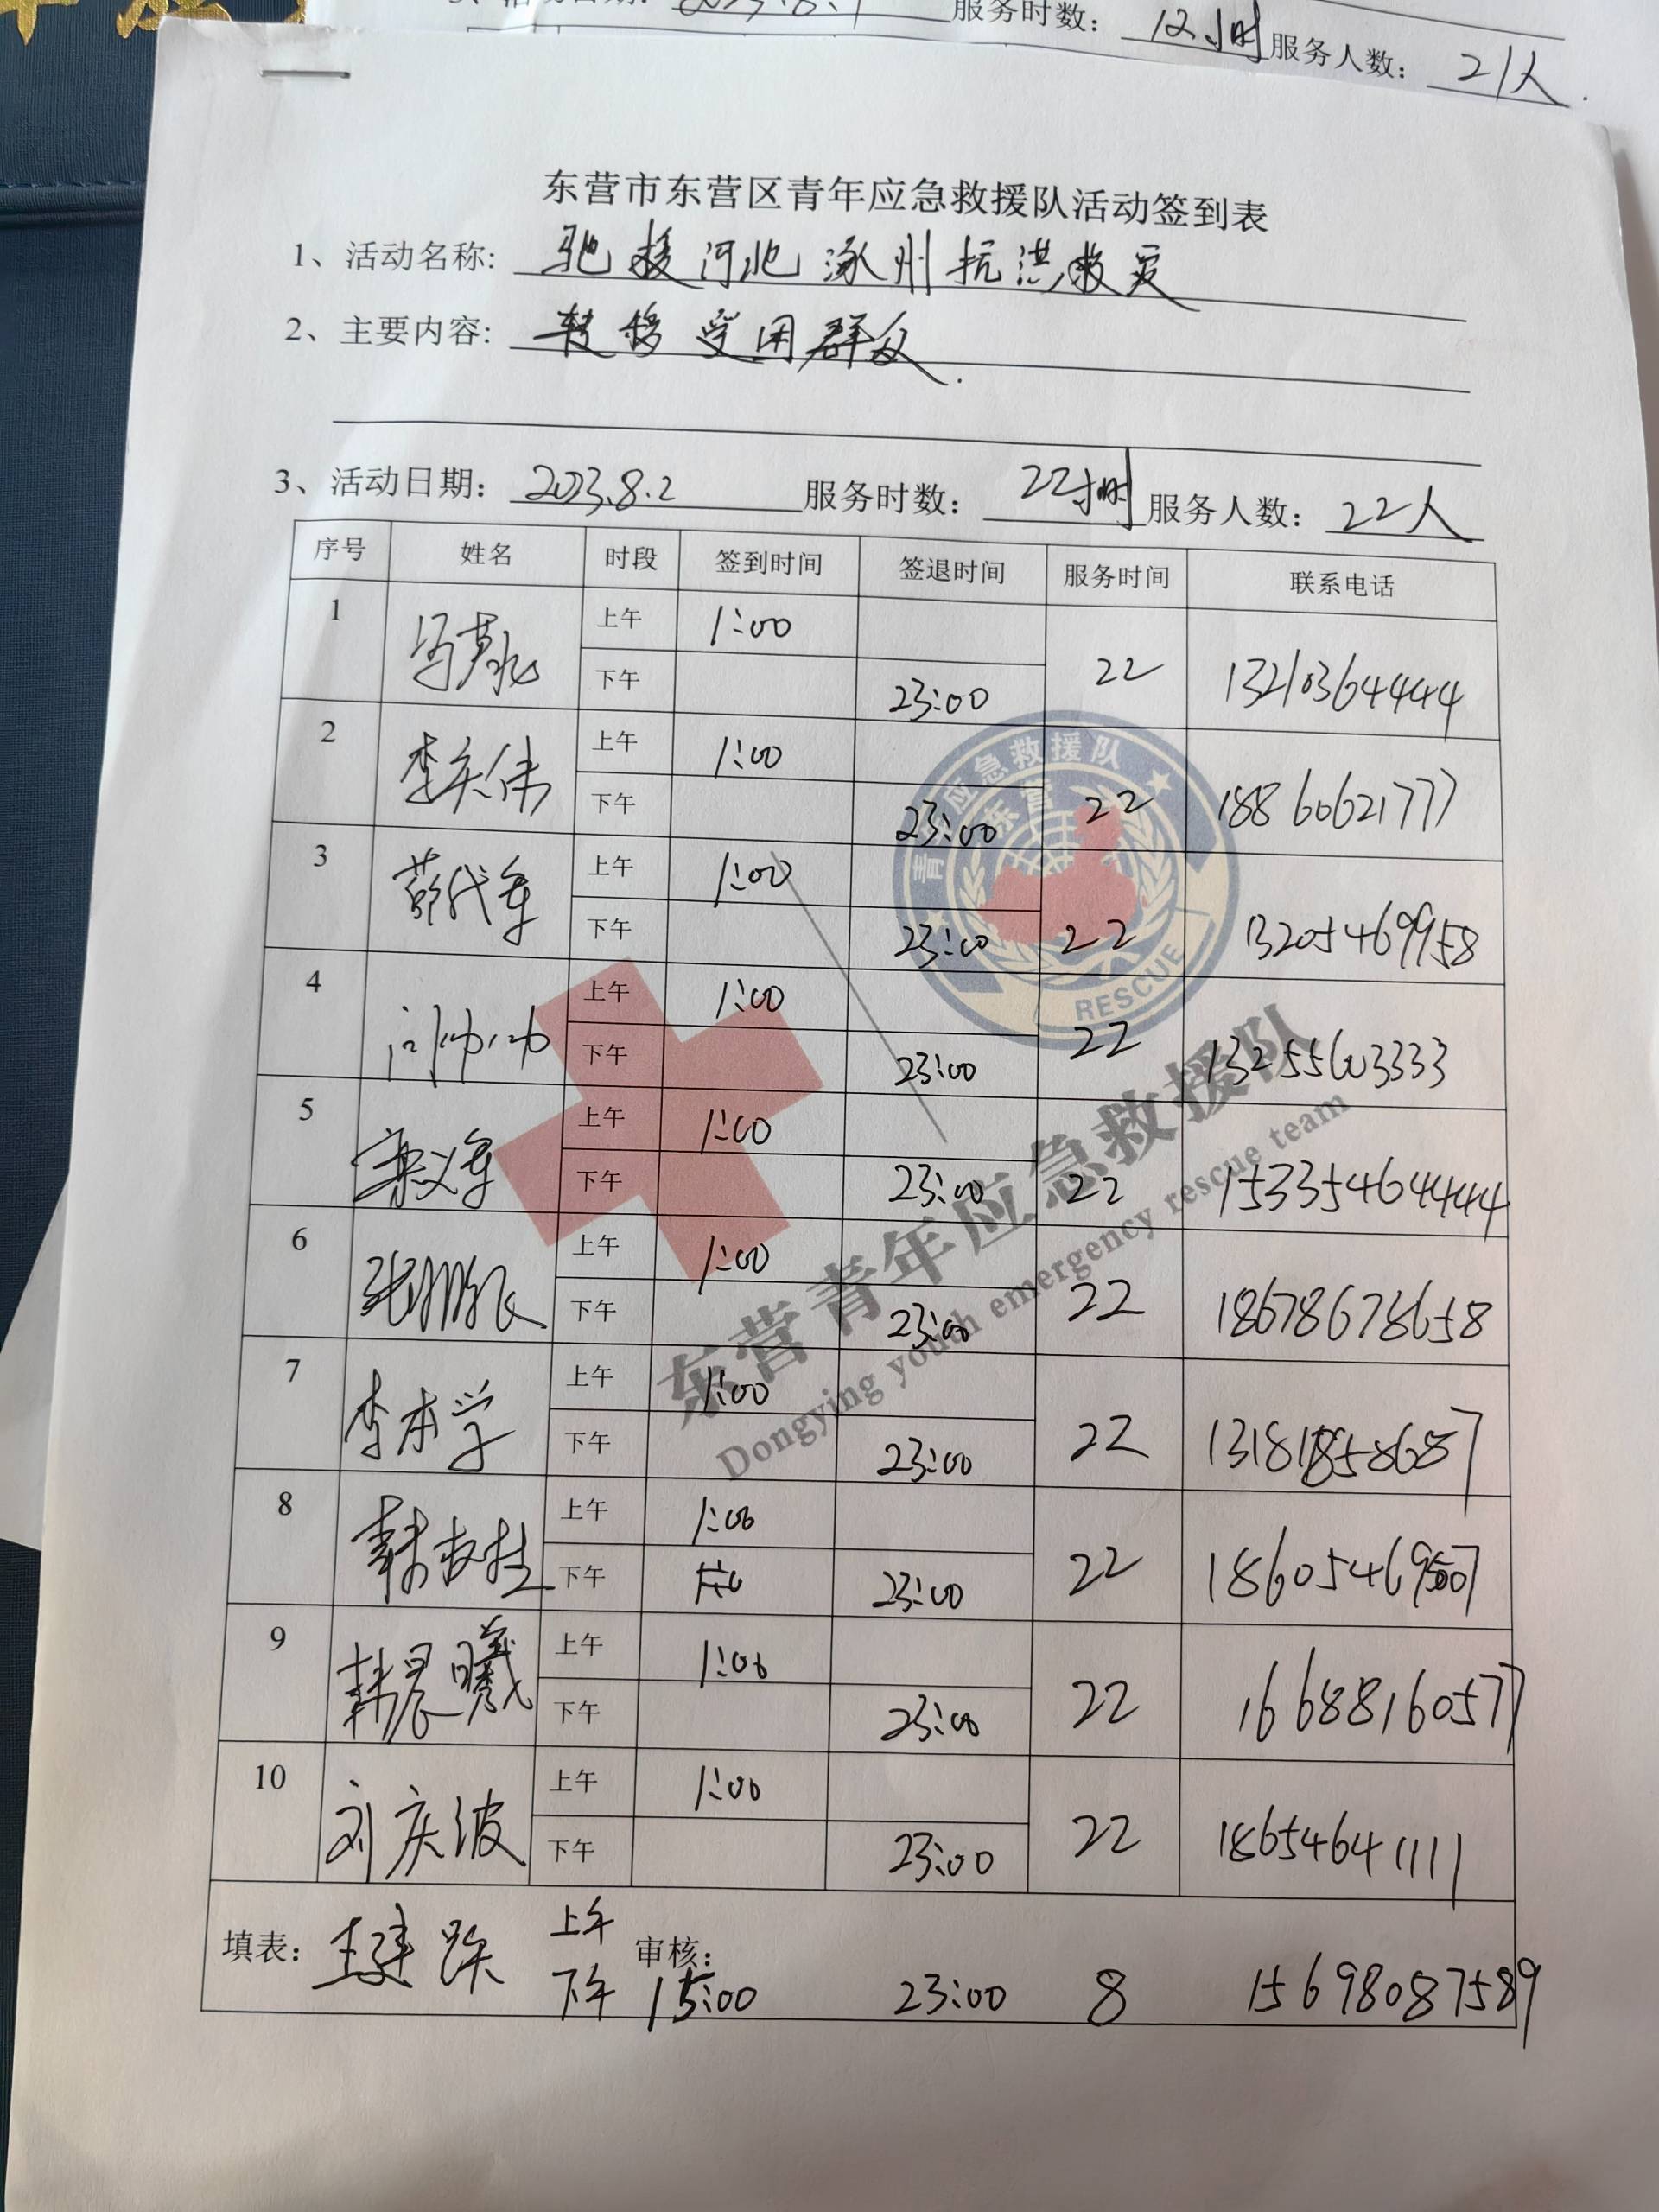 服务时数： 12小时 服务人数： 21人.
东营市东营区青年应急救援队活动签到表
1、活动名称: 驰援河北涿州抗洪救灾
2、主要内容: 转移受困群众.
3、活动日期: 2023.8.2 服务时数: 22小时 服务人数: 22人
序号 姓名 时段 签到时间 签退时间 服务时间 联系电话
1 上午 1:00 22 13210364444
下午 23:00
2 李庆伟 上午 1:00 22 18860621777
下午 23:00
3 上午 1:00 22 13205469958
下午 23:00
4 上午 1:00 22 13255603333
下午 23:00
5 上午 1:00 22 153354644444
下午 23:00
6 上午 1:00 22 18678678658
下午 23:00
7 李本学 上午 1:00 22
下午 23:00
8 上午 1:00 22
下午 23:00
9 韩晨曦 上午 1:00 22 16688160577
下午 23:00
10 刘庆波 上午 1:00 22 18654641111
下午 23:00
填表: 上午 审核:
下午 15:00 23:00 8 15698087589
青年应急救援队
东营
RESCUE
东营青年应急救援队
Dongying youth emergency rescue team